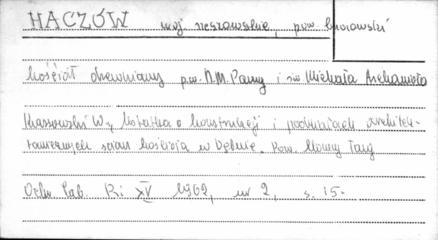 HACZÓW woj. rzeszowskie, pow. brzozowski
kościół drewniany p.w. N.M. Panny i św. Michała Archanioła
Krassowski W., Notatka o konstrukcji i podziałach architek-
tonicznych ścian kościoła w Dębnie, Pow. Nowy Targ
Ochr. Zab. R. XV 1962, nr 2, s. 15-